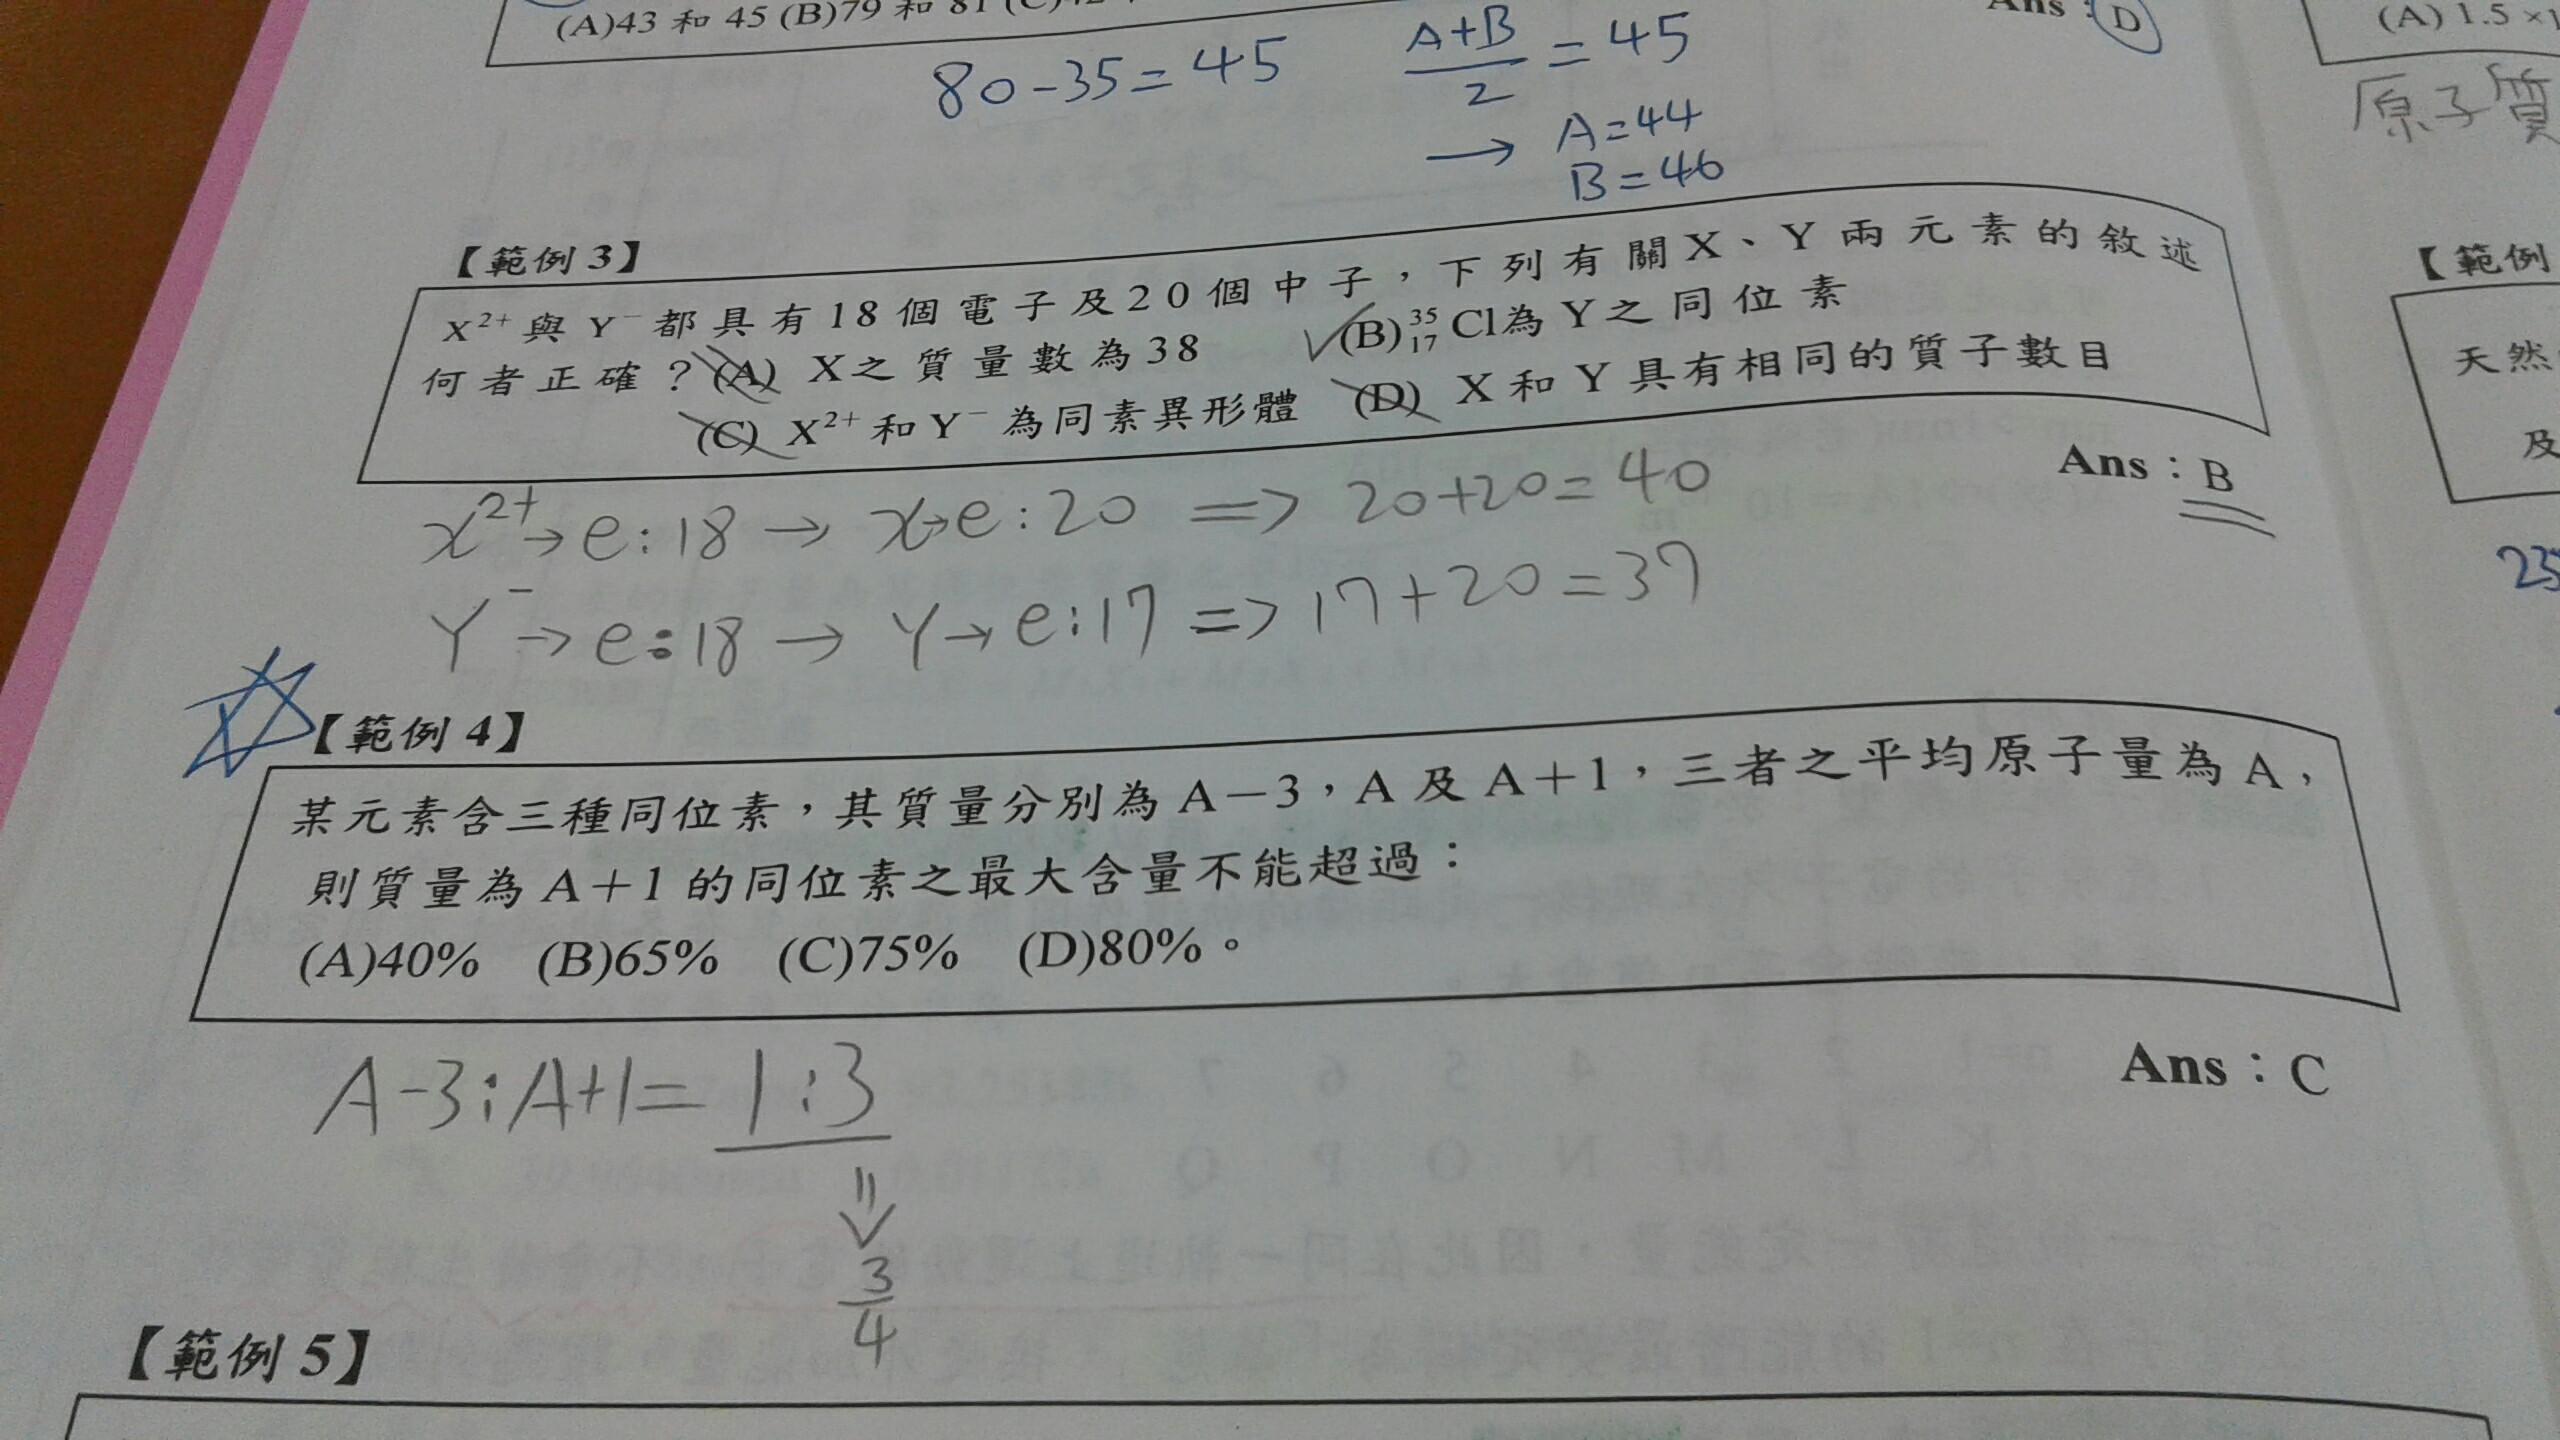 (A)43 和 45 (B)79 和 81
Ans : D
80-35=45
A+B/2 = 45
→ A=44
B=46
【範例 3】
X²⁺與 Y⁻都具有18個電子及20個中子，下列有關X、Y兩元素的敘述
何者正確？(A) X之質量數為38 (B)³⁵₁₇Cl為Y之同位素
(C) X²⁺和Y⁻為同素異形體 (D) X和Y具有相同的質子數目
Ans：B
x²⁺→e:18→ x→e:20 => 20+20=40
Y⁻→e:18→ Y→e:17 => 17+20=37
【範例 4】
某元素含三種同位素，其質量分別為A－3，A及A＋1，三者之平均原子量為A，
則質量為A＋1的同位素之最大含量不能超過：
(A)40% (B)65% (C)75% (D)80%。
Ans：C
A-3:A+1=1:3
3/4
【範例 5】
(A) 1.5 ×1
原子質
【範例
天然
及